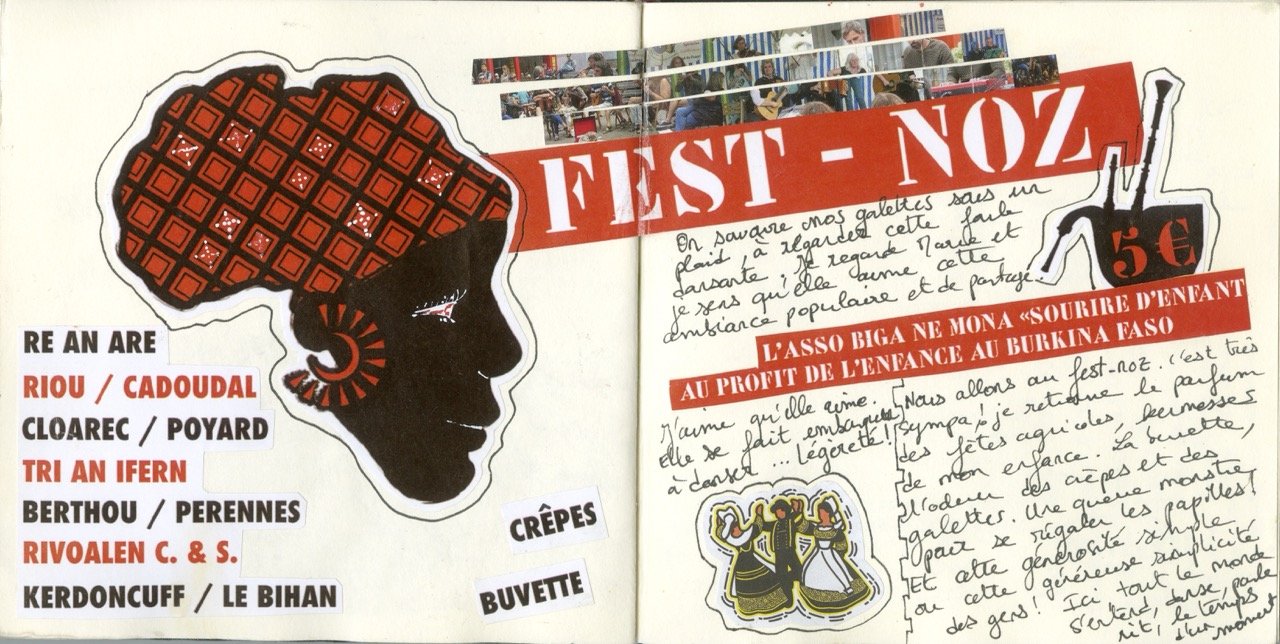 RE AN ARE
RIOU / CADOUDAL
CLOAREC / POYARD
TRI AN IFERN
BERTHOU / PERENNES
RIVOALEN C. & S.
KERDONCUFF / LE BIHAN
CRÊPES
BUVETTE
FEST - NOZ
5 €
On savoure nos galettes sous un
plaid, à regarder cette foule
dansante. Je regarde Marie et
je sens qu'elle aime cette
ambiance populaire et de partage.
L'ASSO BIGA NE MONA «SOURIRE D'ENFANT
AU PROFIT DE L'ENFANCE AU BURKINA FASO
J'aime qu'elle aime.
elle se fait embarquer
à danser ... Légèreté!
Nous allons au fest-noz. C'est très
sympa! je retrouve le parfum
des fêtes agricoles, kermesses
de mon enfance. La buvette,
l'odeur des crêpes et des
galettes. Une queue monstre,
pour se régaler les papilles!
Et cette générosité simple
ou cette généreuse simplicité
des gens! Ici tout le monde
s'entend, danse, parle
rit, le temps
d'un moment